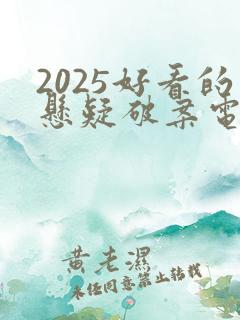 2025好看的
懸疑破案電
黄老濕
未经同意禁止转载